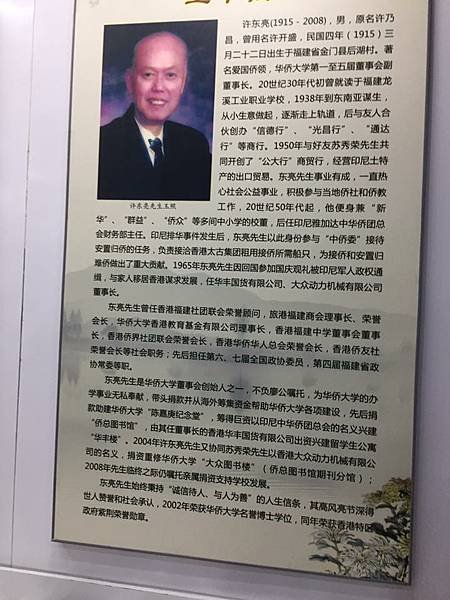 许东亮(1915 - 2008)，男，原名许乃
昌，曾用名许开盛，民国四年（1915）三
月二十二日出生于福建省金门县后湖村。著
名爱国侨领，华侨大学第一至五届董事会副
董事长。20世纪30年代初曾就读于福建龙
溪工业职业学校，1938年到东南亚谋生，
从小生意做起，逐渐走上轨道，后与友人合
伙创办“信德行”、“光昌行”、“通达
行”等商行。1950年与好友苏秀荣先生共
同开创了“公大行”商贸行，经营印尼土特
产的出口贸易。东亮先生事业有成，一直热
心社会公益事业，积极参与当地侨社和侨教
许东亮先生玉照
工作，20世纪50年代起，他便身兼“新
华”、“群益”、“侨众”等多间中小学的校董，后任印尼雅加达中华侨团总
会财务部主任。印尼排华事件发生后，东亮先生以此身份参与“中侨委”接待
安置归侨的任务，负责接洽香港太古集团租用接侨所需船只，为接侨和安置归
难侨做出了重大贡献。1965年东亮先生因回国参加国庆观礼被印尼军人政权通
缉，与家人移居香港谋求发展，任华丰国货有限公司、大众动力机械有限公司
董事长。
东亮先生曾任香港福建社团联会荣誉顾问，旅港福建商会理事长、荣誉
会长，华侨大学香港教育基金有限公司理事长，香港福建中学董事会董事
长，香港侨界社团联会荣誉会长，香港华侨华人总会荣誉会长，香港侨友社
荣誉会长等社会职务；先后担任第六、七届全国政协委员，第四届福建省政
协常委等职。
东亮先生是华侨大学董事会创始人之一，不负廖公嘱托，为华侨大学的办
学事业无私奉献，带头捐款并从海外筹集资金帮助华侨大学各项建设，先后捐
款助建华侨大学“陈嘉庚纪念堂”，筹得巨资以印尼中华侨团总会的名义兴建
“侨总图书馆”，由其任董事长的香港华丰国货有限公司出资兴建留学生公寓
“华丰楼”。2004年许东亮先生又协同苏秀荣先生以香港大众动力机械有限公
司的名义，捐资重修华侨大学“大众图书楼”（侨总图书馆期刊分馆）；
2008年先生临终之际仍嘱托亲属捐资支持学校发展。
东亮先生始终秉持“诚信待人、与人为善”的人生信条，其高风亮节深得
世人赞誉和社会承认，2002年荣获华侨大学名誉博士学位，同年荣获香港特区
政府紫荆荣誉勋章。